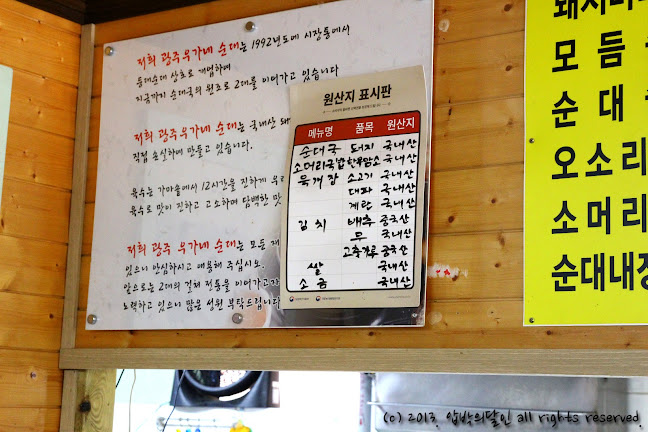 저희 광주우가네 순대는 1992년도에 시장통에서
동네순대 상호로 개업하여
지금까지 순대국의 원조로 2대를 이어가고 있습니다
저희 광주우가네 순대는 국내산 돼
직접 손실하며 만들고 있습니다.
육수는 가마솥에서 12시간을 진하게 우
육수로 맛이 진하고 고소하며 담백한 맛
저희 광주 우가네 순대는 모든 재
있으니 안심하시고 애용해 주십시오.
앞으로는 2대의 걸쳐 전통을 이어가고
노력하고 있으니 많은 성원 부탁드립니다
원산지 표시판
메뉴명 품목 원산지
순대국 돼지 국내산
소머리국밥 한우암소 국내산
육개장 소고기 국내산
대파 국내산
계란 국내산
김치 배추 중국산
무 국내산
고춧가루 중국산
쌀 국내산
소금 국내산
돼지머리
모듬
순대
오소리
소머리
순대내장
(c) 2013. 압박의달인 all rights reserved.